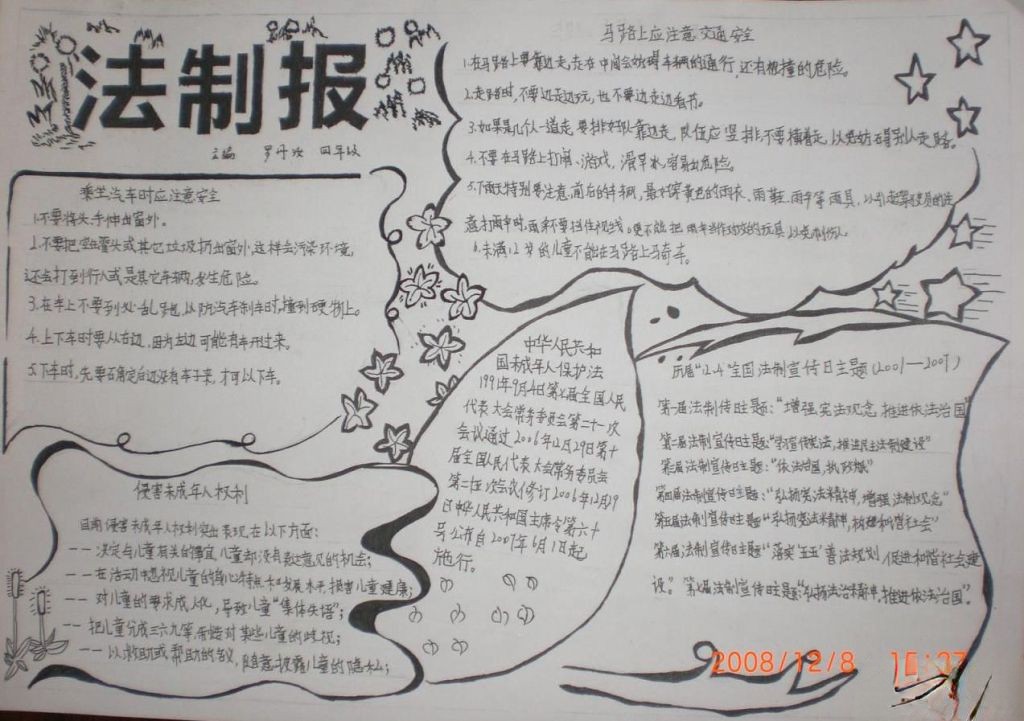 法制报
主编 罗丹 四年级
乘坐汽车时应注意安全
1.不要将头、手伸出窗外。
2.不要把空罐头或其它垃圾扔出窗外,这样会污染环境,
还会打到行人或是其它车辆,发生危险。
3.在车上不要到处乱跑,以防汽车刹车时,撞到硬物上。
4.上下车时要从右边,因为左边可能有车开过来。
5.下车时,先要确定后边没有车子来,才可以下车。
马路上应注意交通安全
1.在马路上要靠边走,走在中间会妨碍车辆的通行,还有被撞的危险。
2.走路时,不要边走边玩,也不要边走边看书。
3.如果是几个人一道走,要排好队靠边走,队伍应竖排,不要横着走,以免妨碍别人走路。
4.不要在马路上打闹、游戏、滑旱冰,容易出危险。
5.下雨天特别要注意前后的车辆,最好穿黄色的雨衣、雨鞋、雨伞等雨具,以引起驾驶员的注
意,打雨伞时,雨伞不要挡住视线。更不能把雨伞当作对攻的玩具,以免刺伤人。
6.未满12岁的儿童不能在马路上骑车。
中华人民共和
国未成年人保护法
1991年9月4日第七届全国人民
代表大会常务委员会第二十一次
会议通过 2006年12月29日第十
届全国人民代表大会常务委员会
第二十五次会议修订 2006年12月29
日中华人民共和国主席令第六十
号公布自2007年6月1日起
施行。
历届"12.4"全国法制宣传日主题(2001—2007)
第一届法制宣传日主题:"增强宪法观念,推进依法治国"
第二届法制宣传日主题:"学习宣传宪法,推进民主法制建设"
第三届法制宣传日主题:"依法治国,执政
第四届法制宣传日主题:"弘扬宪法精神,增强法制观念"
第五届法制宣传日主题"弘扬宪法精神,构建和谐社会"
第六届法制宣传日主题"落实'五五'普法规划 促进和谐社会建
设"。第七届法制宣传日主题:"弘扬法治精神,推进依法治国"。
侵害未成年人权利
目前侵害未成年人权利突出表现在以下方面:
——决定与儿童有关的事宜,儿童却没有发表意见的机会;
——在活动中忽视儿童的身心特点和发展水平,损害儿童健康;
——对儿童的要求成人化,导致儿童"集体失语";
——把儿童分成三六九等,带着对某些儿童的歧视;
——以救助或帮助的名义,随意披露儿童的隐私;
2008/12/8